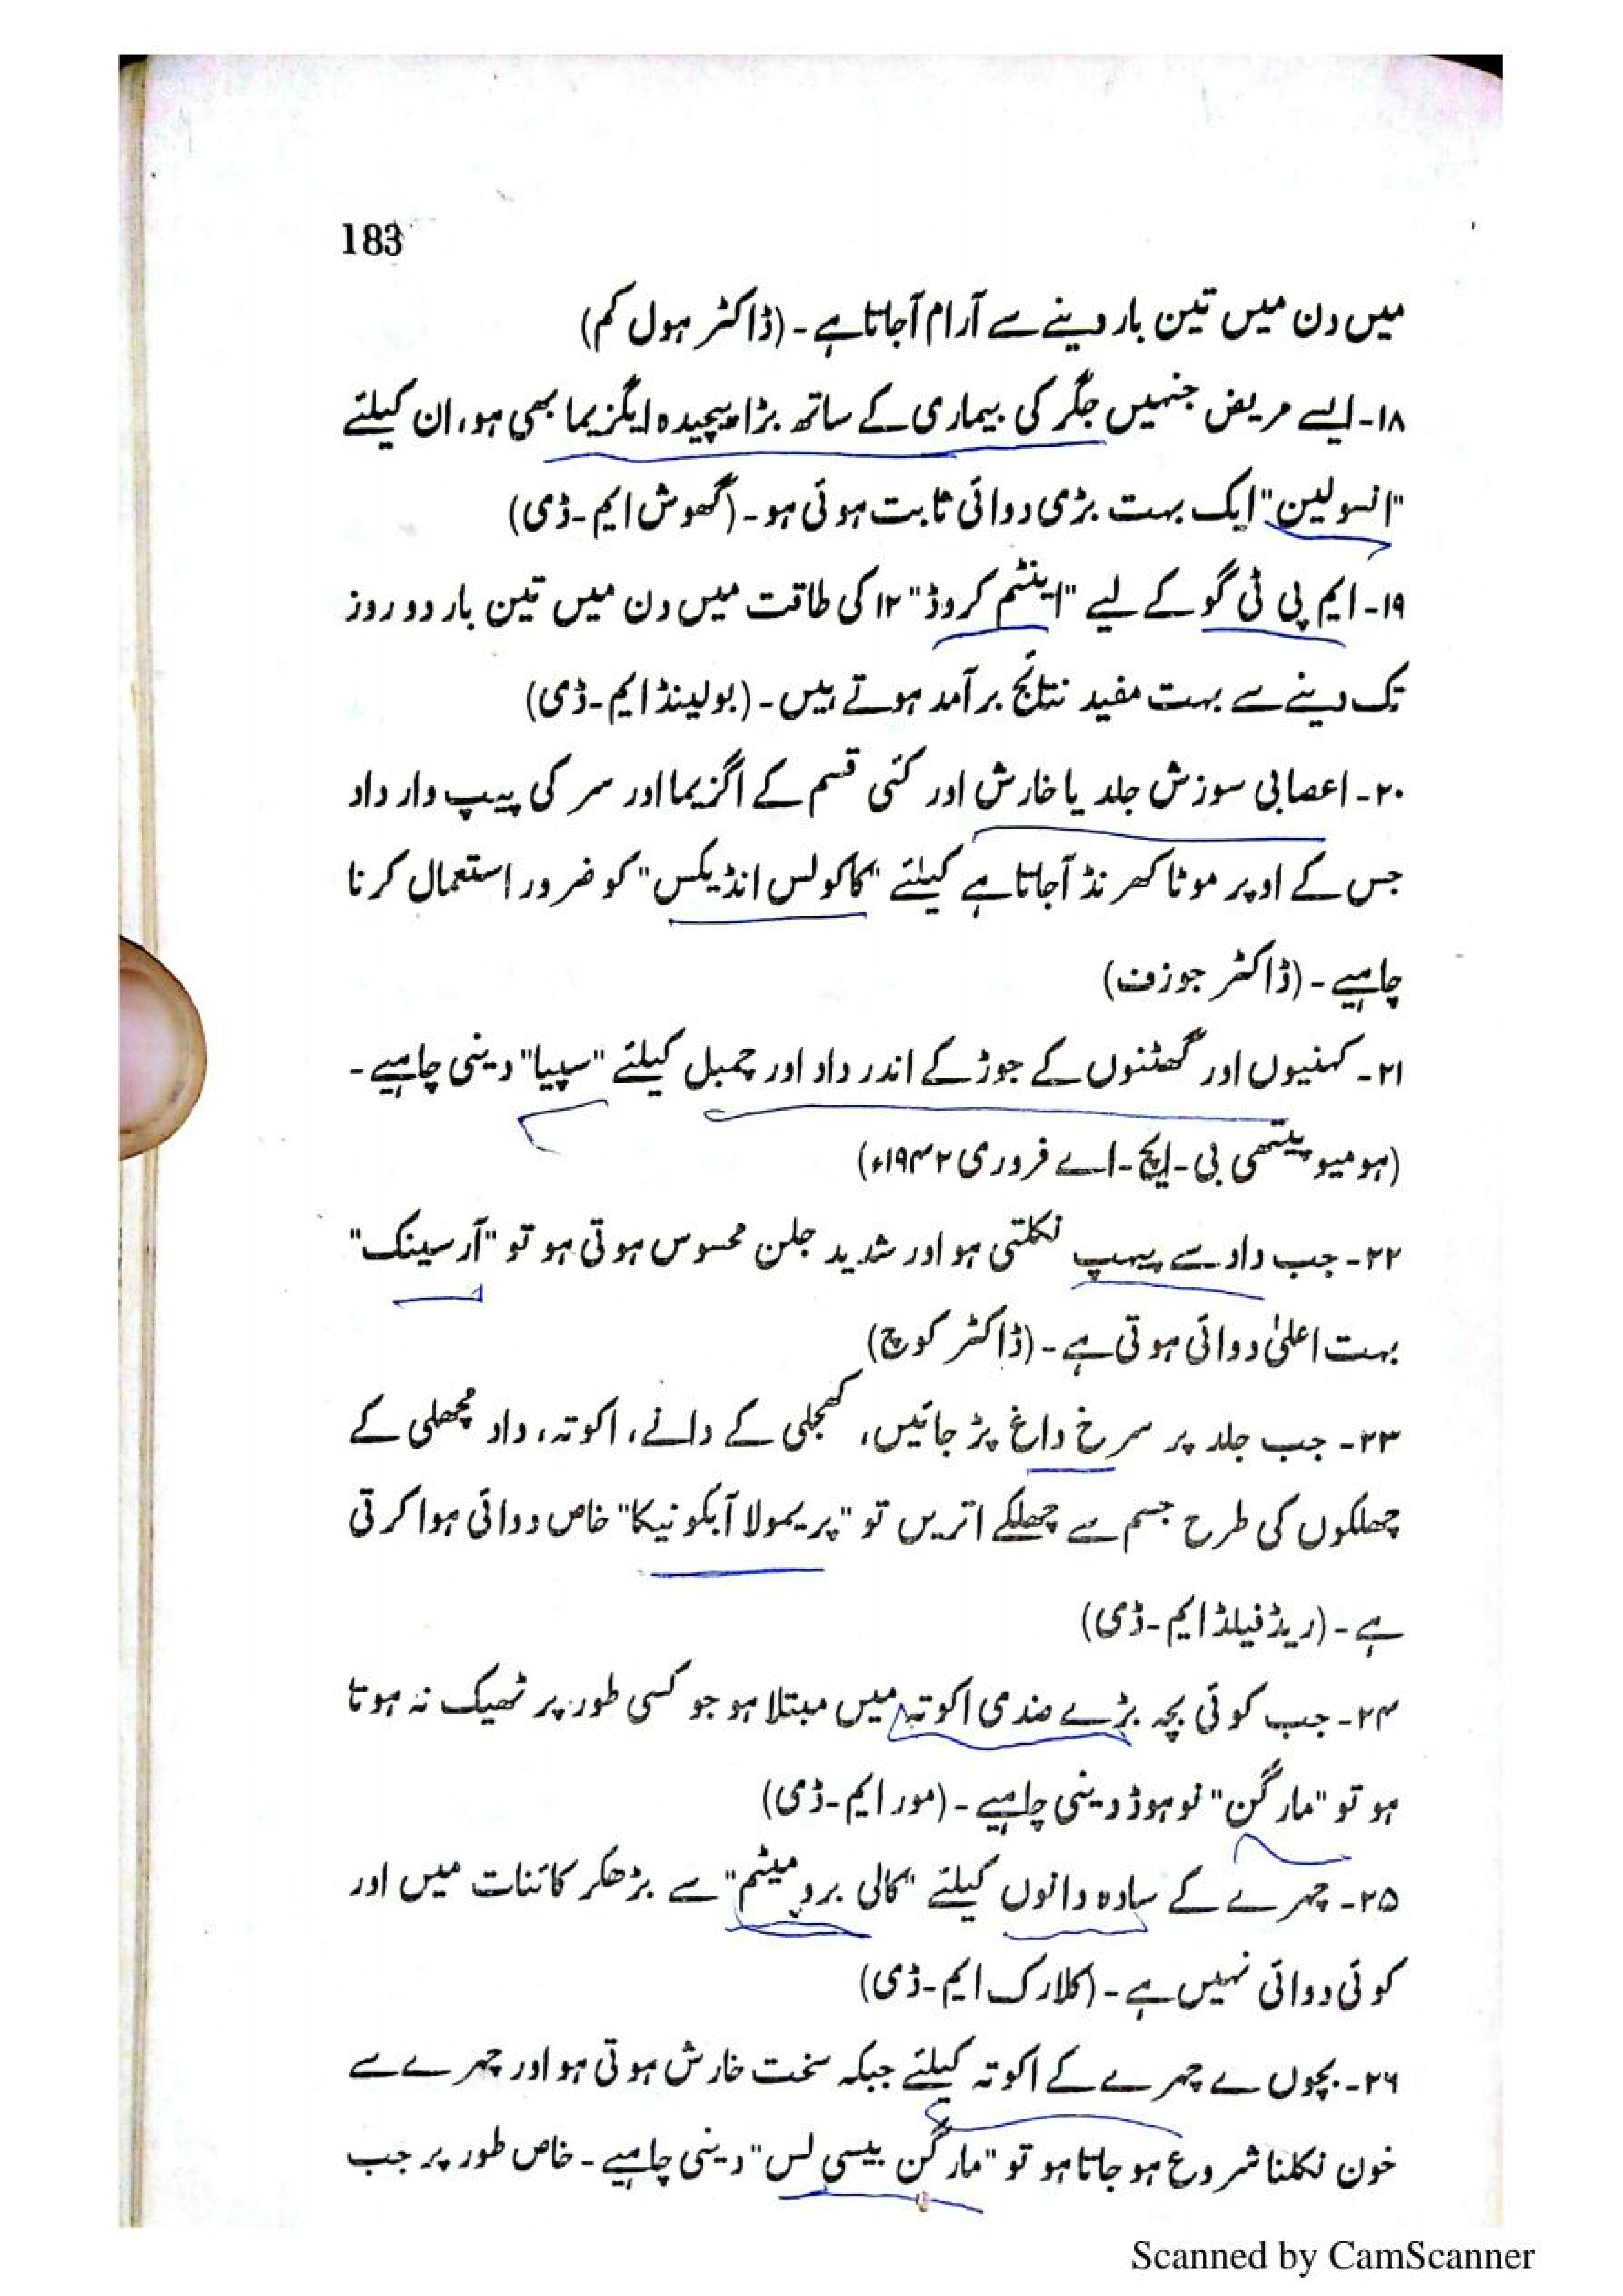 183
میں دن میں تین بار دینے سے آرام آجاتا ہے ۔ (ڈاکٹر ہول کم)
۱۸۔ ایسے مریض جنہیں جگر کی بیماری کے ساتھ بڑا پیچیدہ ایگزیما بھی ہو، ان کیلئے
"انسولین" ایک بہت بڑی دوائی ثابت ہوئی ہو ۔ (گھوش ایم۔ڈی)
۱۹۔ ایم پی ٹی گو کے لیے "اینٹم کروڈ" ۱۲ کی طاقت میں دن میں تین بار دو روز
تک دینے سے بہت مفید نتائج برآمد ہوتے ہیں ۔ (بولینڈ ایم۔ڈی)
۲۰۔ اعصابی سوزش جلد یا خارش اور کئی قسم کے اگزیما اور سر کی پیپ دار داد
جس کے اوپر موٹا کھرنڈ آجاتا ہے کیلئے "کاکولس انڈیکس" کو ضرور استعمال کرنا
چاہیے ۔ (ڈاکٹر جوزف)
۲۱۔ کہنیوں اور گھٹنوں کے جوڑ کے اندر داد اور چمبل کیلئے "سپیا" دینی چاہیے ۔
(ہومیوپیتھی بی۔ایچ۔اے فروری ۱۹۴۲ء)
۲۲۔ جب داد سے پیپ نکلتی ہو اور شدید جلن محسوس ہوتی ہو تو "آرسینک"
بہت اعلیٰ دوائی ہوتی ہے ۔ (ڈاکٹر کوچ)
۲۳۔ جب جلد پر سرخ داغ پڑ جائیں، کھجلی کے دانے، اکوتہ، داد مچھلی کے
چھلکوں کی طرح جسم سے چھلکے اتریں تو "پریمولا آبکونیکا" خاص دوائی ہوا کرتی
ہے ۔ (ریڈفیلڈ ایم۔ڈی)
۲۴۔ جب کوئی بچہ بڑے ضدی اکوتہ میں مبتلا ہو جو کسی طور پر ٹھیک نہ ہوتا
ہو تو "مارگن" نوہوڈ دینی چاہیے ۔ (مور ایم۔ڈی)
۲۵۔ چہرے کے سادہ دانوں کیلئے "کالی برومیٹم" سے بڑھکر کائنات میں اور
کوئی دوائی نہیں ہے ۔ (کلارک ایم۔ڈی)
۲۶۔ بچوں ے چہرے کے اکوتہ کیلئے جبکہ سخت خارش ہوتی ہو اور چہرے سے
خون نکلنا شروع ہو جاتا ہو تو "مارگن بیسی لس" دینی چاہیے ۔ خاص طور پر جب
Scanned by CamScanner